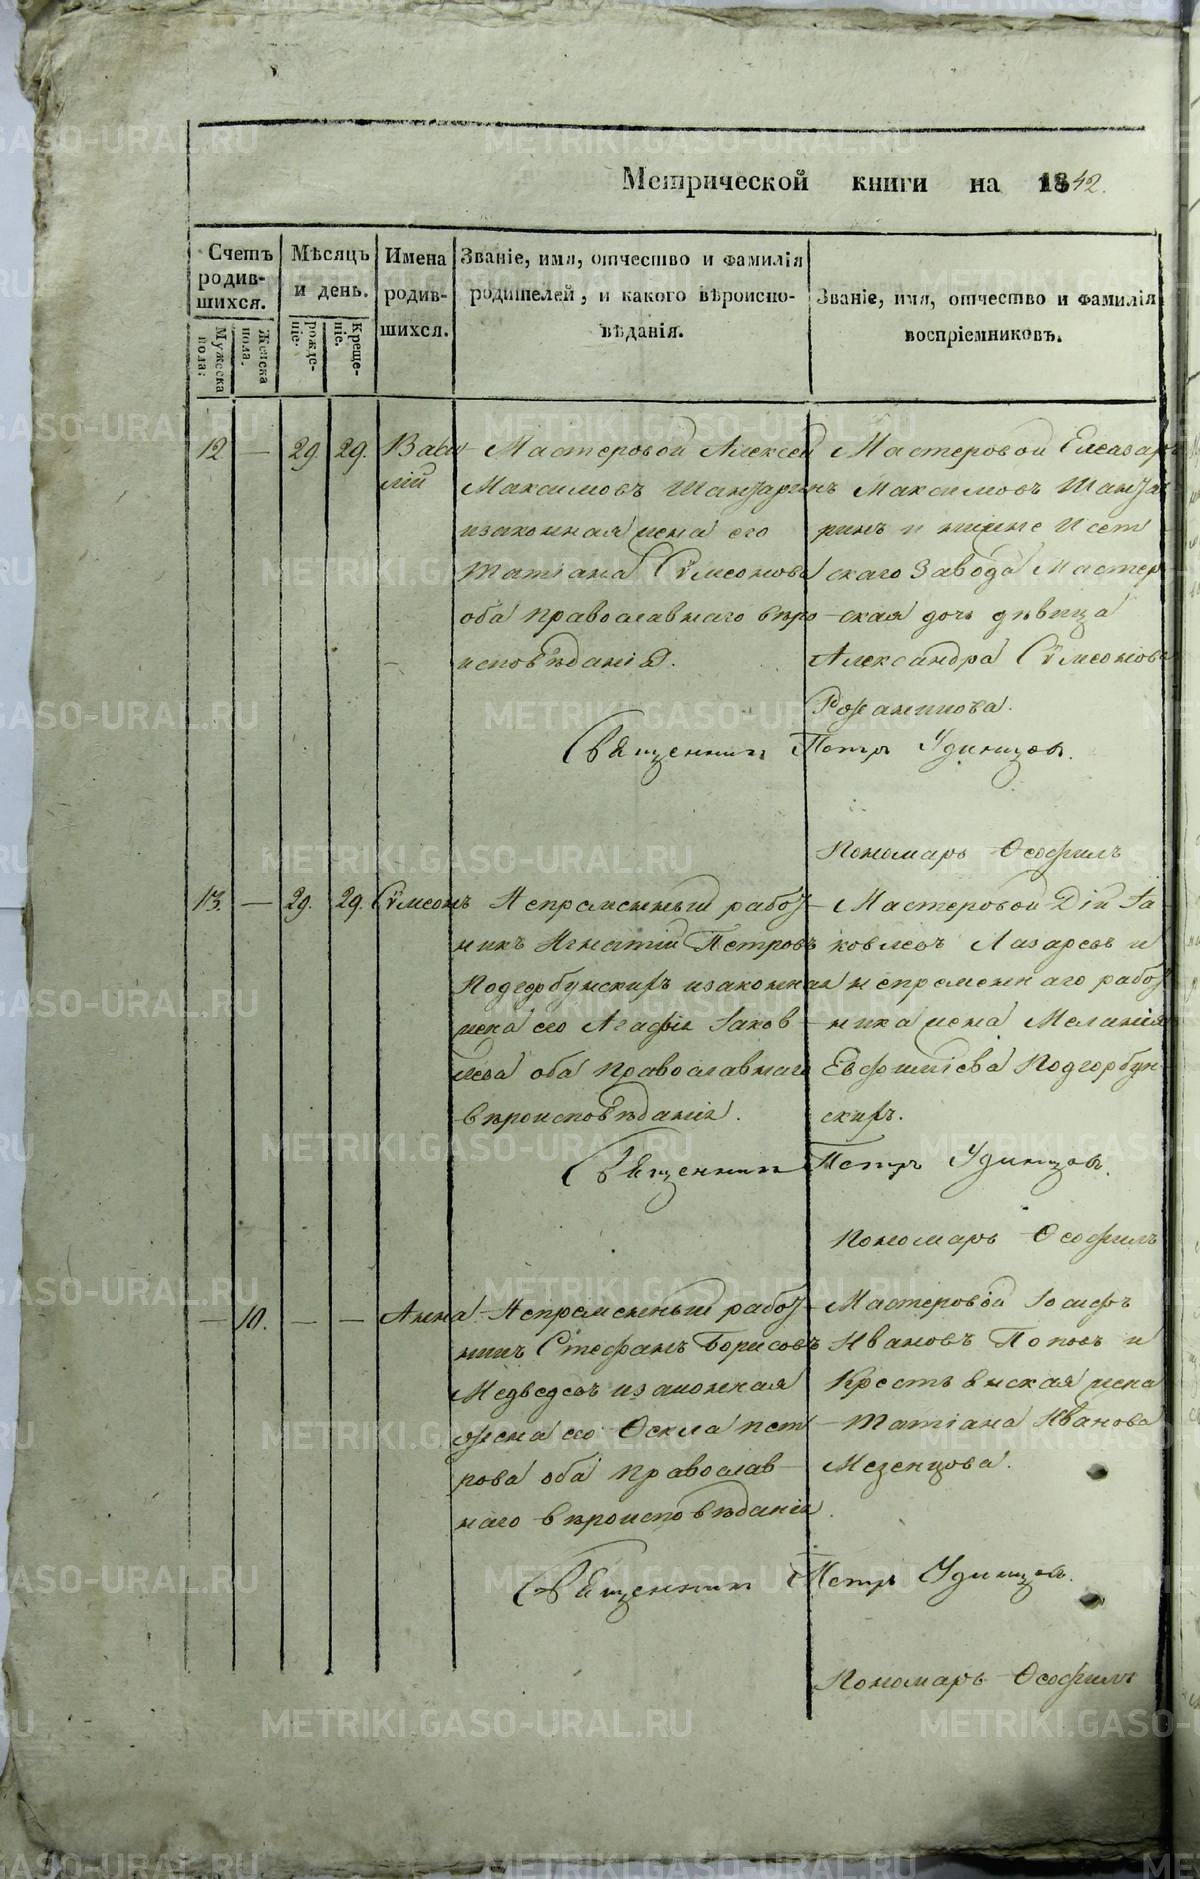 Метрической книги на 1842.
Счетъ родив-шихся.
Мужеска пола:
Женска пола.
Мѣсяцъ и день.
рожде-ніе.
Креще-ніе.
Имена родив-шихся.
Званіе, имя, отчество и фамилія
родителей, и какого вѣроиспо-
вѣданія.
Званіе, имя, отчество и фамилія
воспріемниковъ.
12 — 29. 29. Васи-
лій
Мастеровой Алексей
Максимовъ
изаконная жена его
Татіана Сѵмеонова
оба православнаго вѣро
исповѣданія.
Мастеровой Елеазаръ
Максимовъ
ринъ и нижне Исет
скаго Завода Мастер
ская дочь дѣвица
Александра Сѵмеонова
Священник Петръ Удинцов.
Пономарь Ѳеофилъ
13. — 29. 29. Сѵмеонъ
Непременный работ-
никъ Игнатій Петровъ
Подгорбунскихъ изаконная
жена его Агафія Іаков-
лева оба православнаго
вѣроисповѣданія.
Мастеровой Дій Іа
ковлевъ Лазаревъ и
непременнаго работ
ника жена Меланія
Евфиміева Подгорбун-
скихъ.
Священник Петръ Удинцов.
Пономарь Ѳеофилъ
— 10. — — Анна
Непременный работ-
никъ Стефанъ Борисовъ
Медведевъ изаконная
жена его Ѳекла Пет
рова оба православ-
наго вѣроисповѣданія.
Мастеровой Іосифъ
Ивановъ Поповъ и
Крестьянская жена
Татіана Иванова
Мезенцова.
Священник Петръ Удинцов.
Пономарь Ѳеофилъ
METRIKI.GASO-URAL.RU